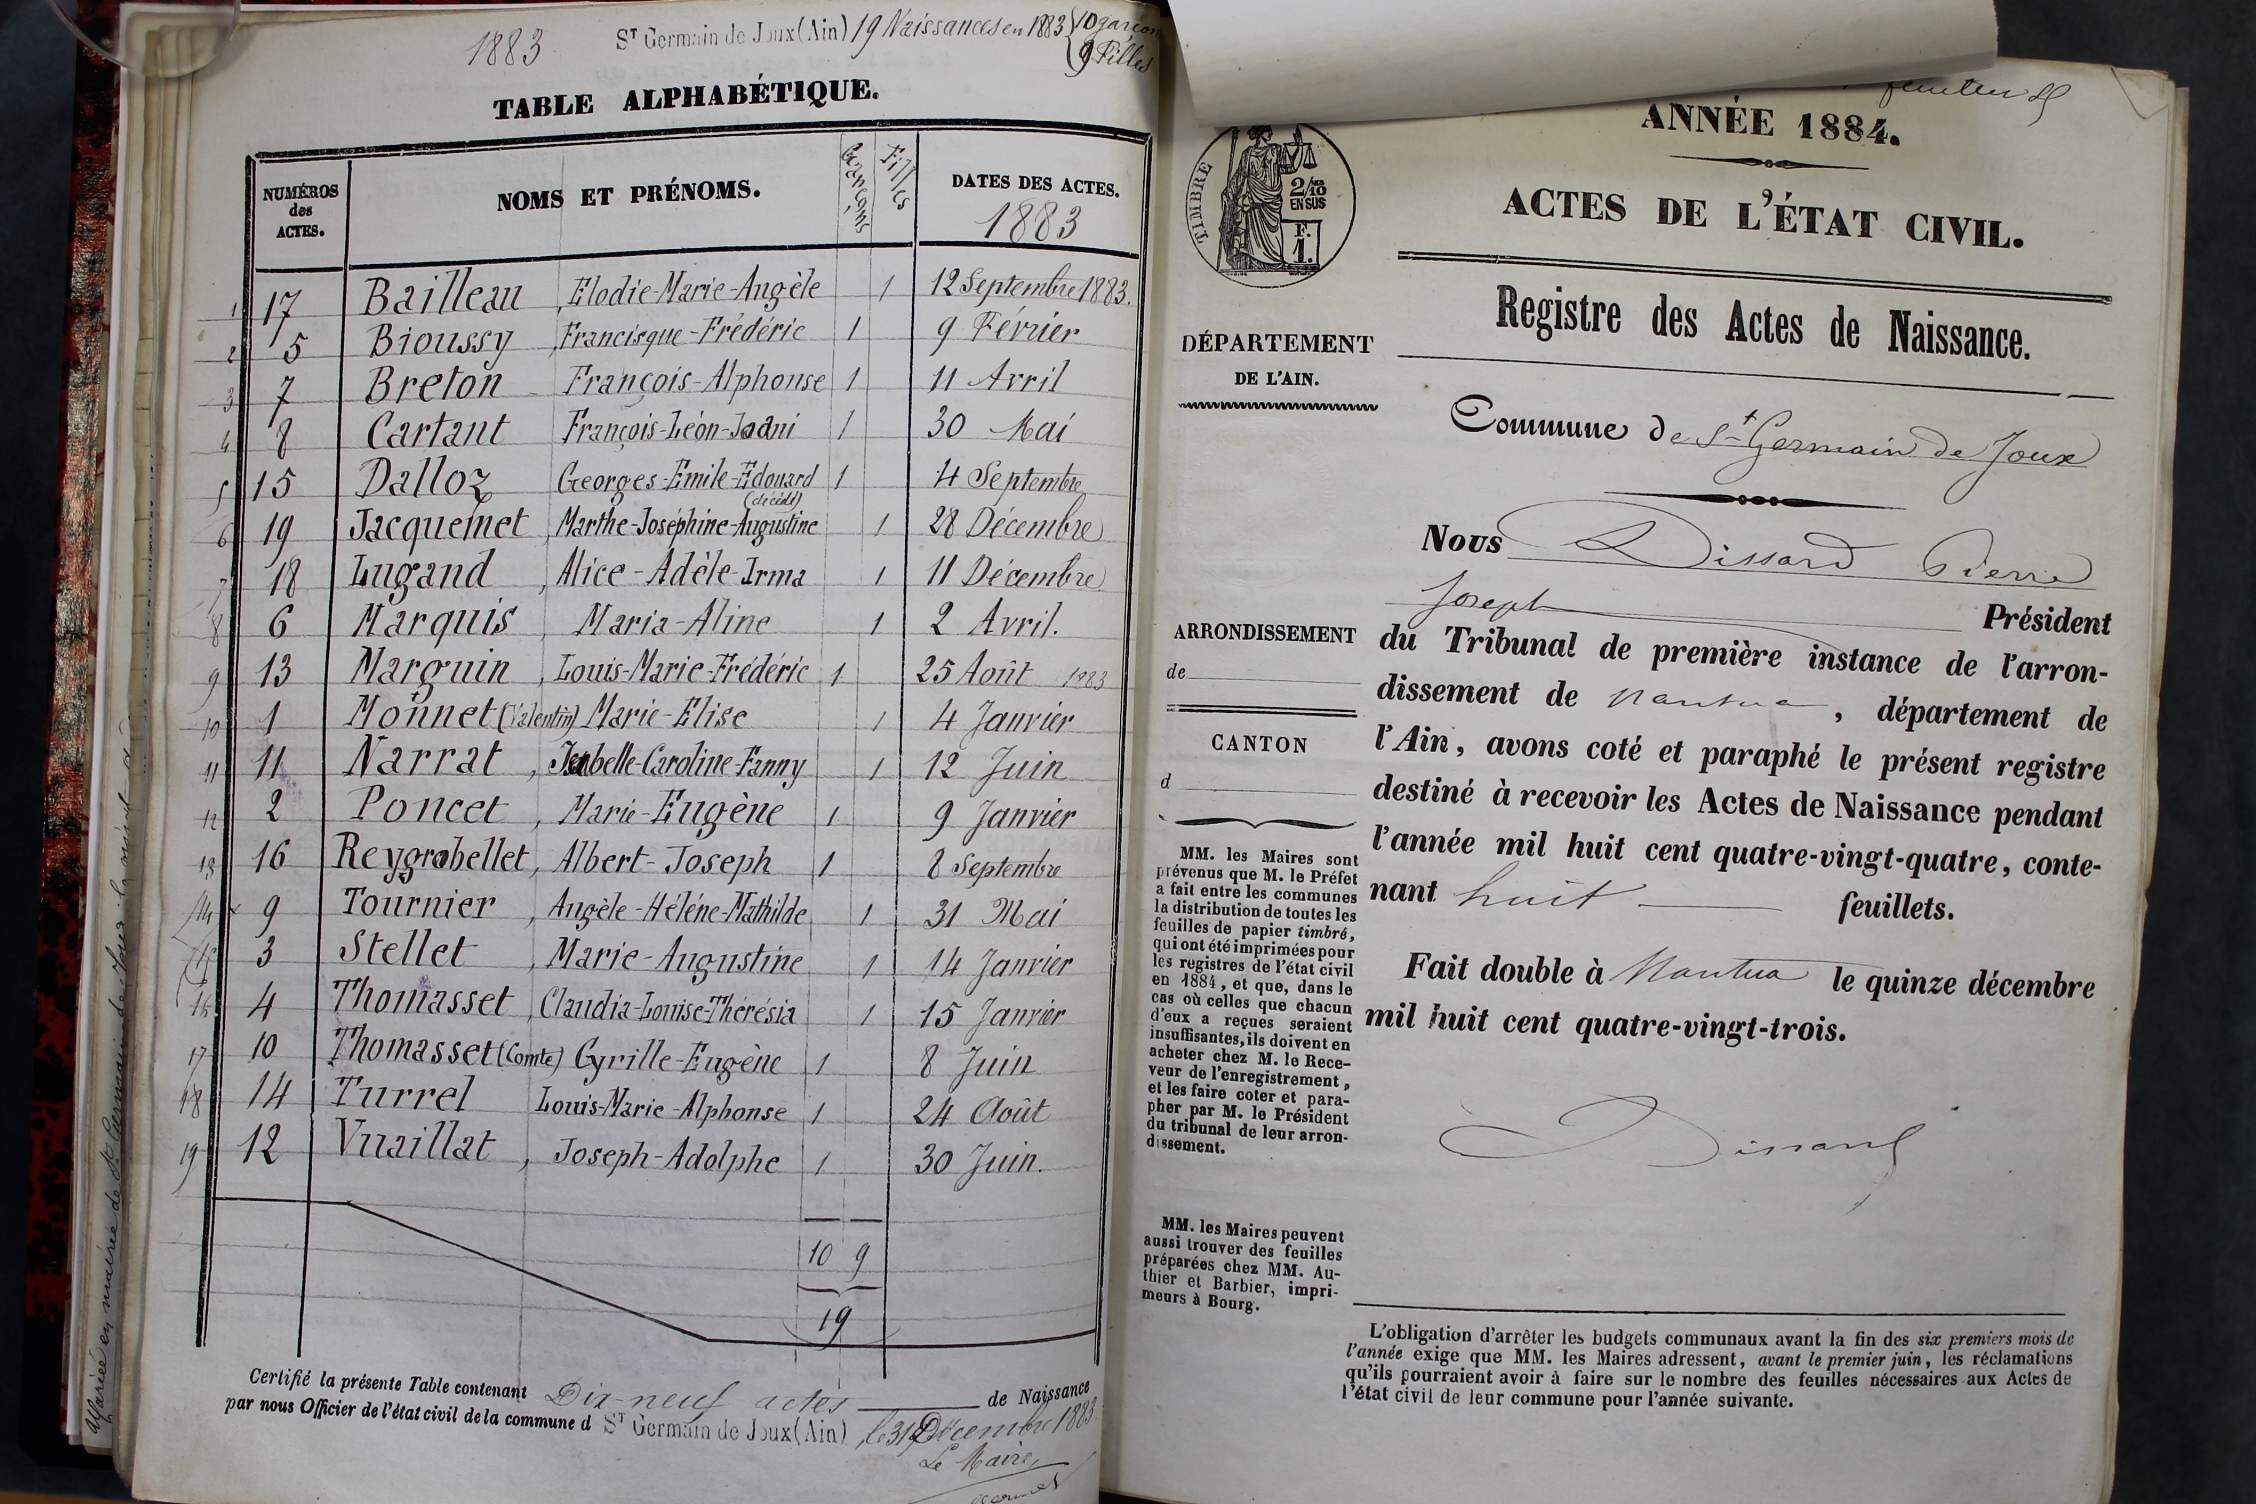 1883
ST Germain de Joux (Ain) 19 Naissances en 1883 { 10 garçon
9 Filles
TABLE ALPHABÉTIQUE.
NUMÉROS des ACTES. NOMS ET PRÉNOMS. Garçons Filles DATES DES ACTES. 1883
1 17 Bailleau, Elodie-Marie-Angèle 1 12 Septembre 1883.
2 5 Bioussy, Francisque-Frédéric 1 9 Février
3 7 Breton François-Alphonse 1 11 Avril
4 8 Cartant François-Léon-Joani 1 30 Mai
5 15 Dalloz Georges-Emile-Edouard 1 4 Septembre
(décédé)
6 19 Jacquemet, Marthe-Joséphine-Augustine 1 28 Décembre
7 18 Lugand, Alice-Adèle-Irma 1 11 Décembre
8 6 Marquis, Maria-Aline 1 2 Avril.
9 13 Marguin, Louis-Marie-Frédéric 1 25 Août 1883
10 1 Monnet (Valentin) Marie-Elise 1 4 Janvier
11 11 Narrat, Isabelle-Caroline-Fanny 1 12 Juin
12 2 Poncet, Marie-Eugène 1 9 Janvier
13 16 Reygrobellet, Albert-Joseph 1 8 Septembre
14 x 9 Tournier, Angèle-Hélène-Mathilde 1 31 Mai
15 3 Stellet, Marie-Augustine 1 14 Janvier
16 4 Thomasset, Claudia-Louise-Thérésia 1 15 Janvier
17 10 Thomasset (Comte) Cyrille-Eugène 1 8 Juin
18 14 Turrel Louis-Marie-Alphonse 1 24 Août
19 12 Vuaillat, Joseph-Adolphe 1 30 Juin.
10 9
19
Certifié la présente Table contenant Dix-neuf actes de Naissance
par nous Officier de l'état civil de la commune d ST Germain de Joux (Ain), le 31 Décembre 1883.
Le Maire,
ANNÉE 1884.
ACTES DE L'ÉTAT CIVIL.
TIMBRE
2/10 EN SUS
F. 1.
Registre des Actes de Naissance.
DÉPARTEMENT
DE L'AIN.
Commune de St Germain de Joux
Nous Dissard Pierre
Joseph Président
du Tribunal de première instance de l'arron-
dissement de Nantua, département de
l'Ain, avons coté et paraphé le présent registre
destiné à recevoir les Actes de Naissance pendant
l'année mil huit cent quatre-vingt-quatre, conte-
nant huit feuillets.
Fait double à Nantua le quinze décembre
mil huit cent quatre-vingt-trois.
Dissard
ARRONDISSEMENT
de
CANTON
d
MM. les Maires sont
prévenus que M. le Préfet
a fait entre les communes
la distribution de toutes les
feuilles de papier timbré,
qui ont été imprimées pour
les registres de l'état civil
en 1884, et que, dans le
cas où celles que chacun
d'eux a reçues seraient
insuffisantes, ils doivent en
acheter chez M. le Rece-
veur de l'enregistrement,
et les faire coter et para-
pher par M. le Président
du tribunal de leur arron-
dissement.
MM. les Maires peuvent
aussi trouver des feuilles
préparées chez MM. Au-
thier et Barbier, impri-
meurs à Bourg.
L'obligation d'arrêter les budgets communaux avant la fin des six premiers mois de
l'année exige que MM. les Maires adressent, avant le premier juin, les réclamations
qu'ils pourraient avoir à faire sur le nombre des feuilles nécessaires aux Actes de
l'état civil de leur commune pour l'année suivante.